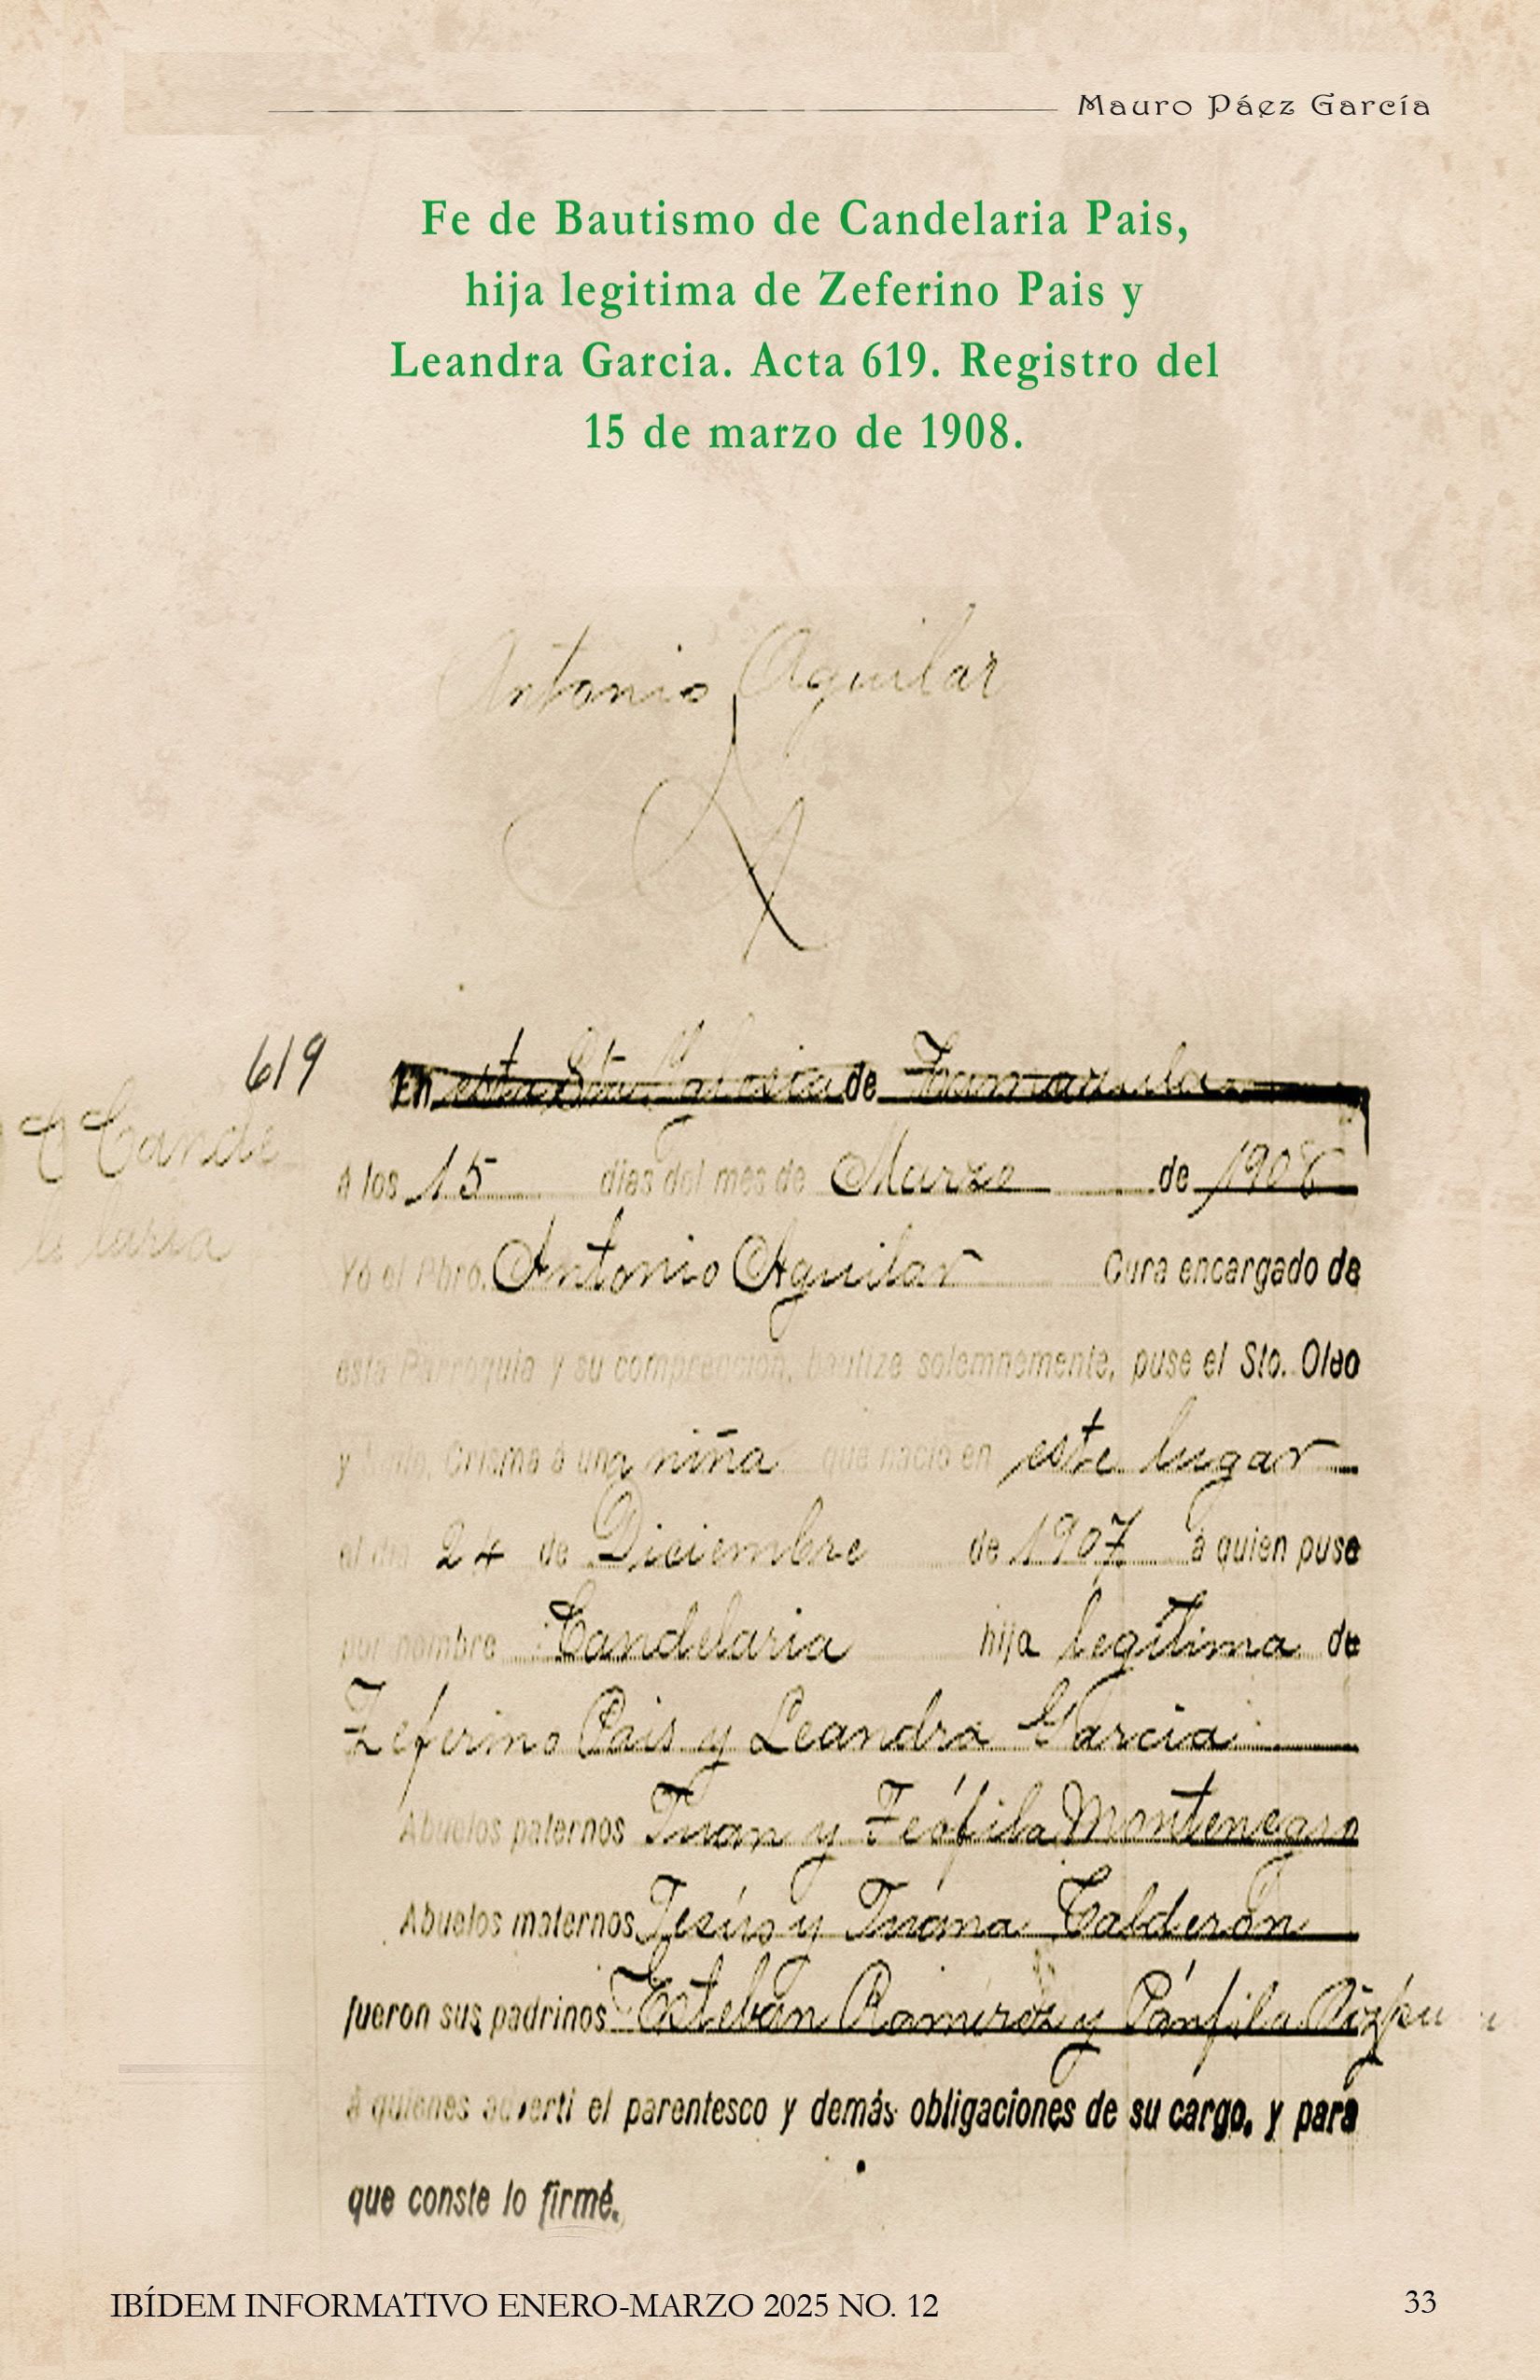 Mauro Páez García
Fe de Bautismo de Candelaria Pais,
hija legitima de Zeferino Pais y
Leandra Garcia. Acta 619. Registro del
15 de marzo de 1908.
Antonio Aguilar
619
Cande
laria
En esta Sta. Iglesia de Tamazula
á los 15 dias del mes de Marzo de 1908
Yo el Pbro. Antonio Aguilar Cura encargado de
esta Parroquia y su comprención, bautize solemnemente, puse el Sto. Oleo
y Crisma á una niña que nació en este lugar
el dia 24 de Diciembre de 1907 á quien puse
por nombre Candelaria hija legítima de
Zeferino Pais y Leandra Garcia
Abuelos paternos Juan y Teófila Montenegro
Abuelos maternos Jesús y Juana Calderón
fueron sus padrinos Esteban Ramirez y Pánfila
á quienes adverti el parentesco y demás obligaciones de su cargo, y para
que conste lo firmé.
IBÍDEM INFORMATIVO ENERO-MARZO 2025 NO. 12
33